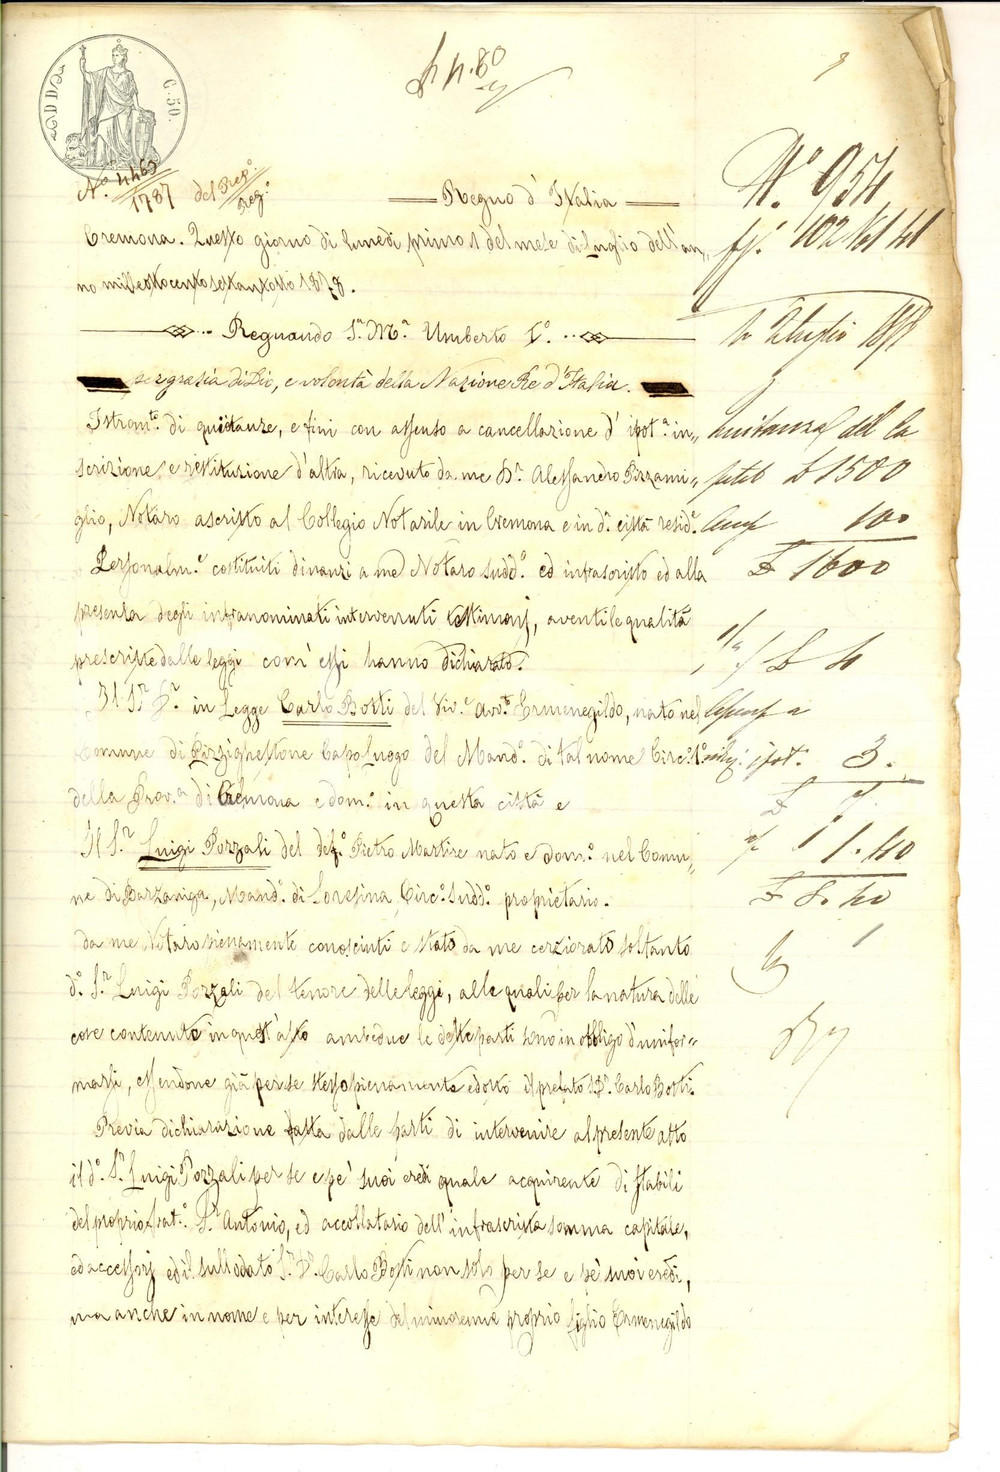 C. 50.
N.° 4463 / 1787 del Rep.° / Reg.°
Regno d' Italia
N.° 954
Cremona. Questo giorno di lunedì primo 1 del mese di Luglio dell'an-
no milleottocentosettantotto 1878.
Regnando S.a M.a Umberto I.°
per grazia di Dio, e volontà della Nazione Re d'Italia.
Istrom.to di quitanze, e fini con assenso a cancellazione d' ipot.a in-
scrizione e restituzione d'altra, ricevuto da me D.r Alessandro Pizzami-
glio, Notaro ascritto al Collegio Notarile in Cremona e in d.a città resid.e
Personalm.e costituiti dinanzi a me Notaro sudd.o ed infrascritto ed alla
presenza degli infranominati intervenuti testimonj, aventi le qualità
prescritte dalle leggi com' essi hanno dichiarato.
Il S.r D.r in Legge Carlo Botti del viv.e avv.to Ermenegildo, nato nel
Comune di Pizzighettone Capo Luogo del Mand.o di tal nome Circ.o 1.o
della Prov.a di Cremona e dom.o in questa città e
Il S.r Luigi Pozzali del def.o Pietro Martire nato e dom.o nel Comu-
ne di Barzaniga, Mand.o di Soresina Circ.o sudd.o proprietario.
da me Notaro pienamente conosciuti e stato da me cerziorato soltanto
d.o S.r Luigi Pozzali del tenore delle leggi, alle quali per la natura delle
cose contenute in quest'atto ambedue le dette parti sono in obbligo d'unifor-
marsi, essendone già per se stesso pienamente edotto il prefato S.r D.r Carlo Botti.
Previa dichiarazione fatta dalle parti di intervenire al presente atto
il d.o S.r Luigi Pozzali per se e pe' suoi eredi quale acquirente di stabili
del proprio frat.o S.r Antonio, ed accollatario dell' infrascritta somma capitale,
ed accessorj ed il sullodato S.r D.r Carlo Botti non solo per se e pe' suoi eredi,
ma anche in nome e per interesse del minorenne proprio figlio Ermenegildo
Quitanza del ca
pital £ 1500
100
£ 1600
£ 4
ipot. 3.
1.40
£ 8.40